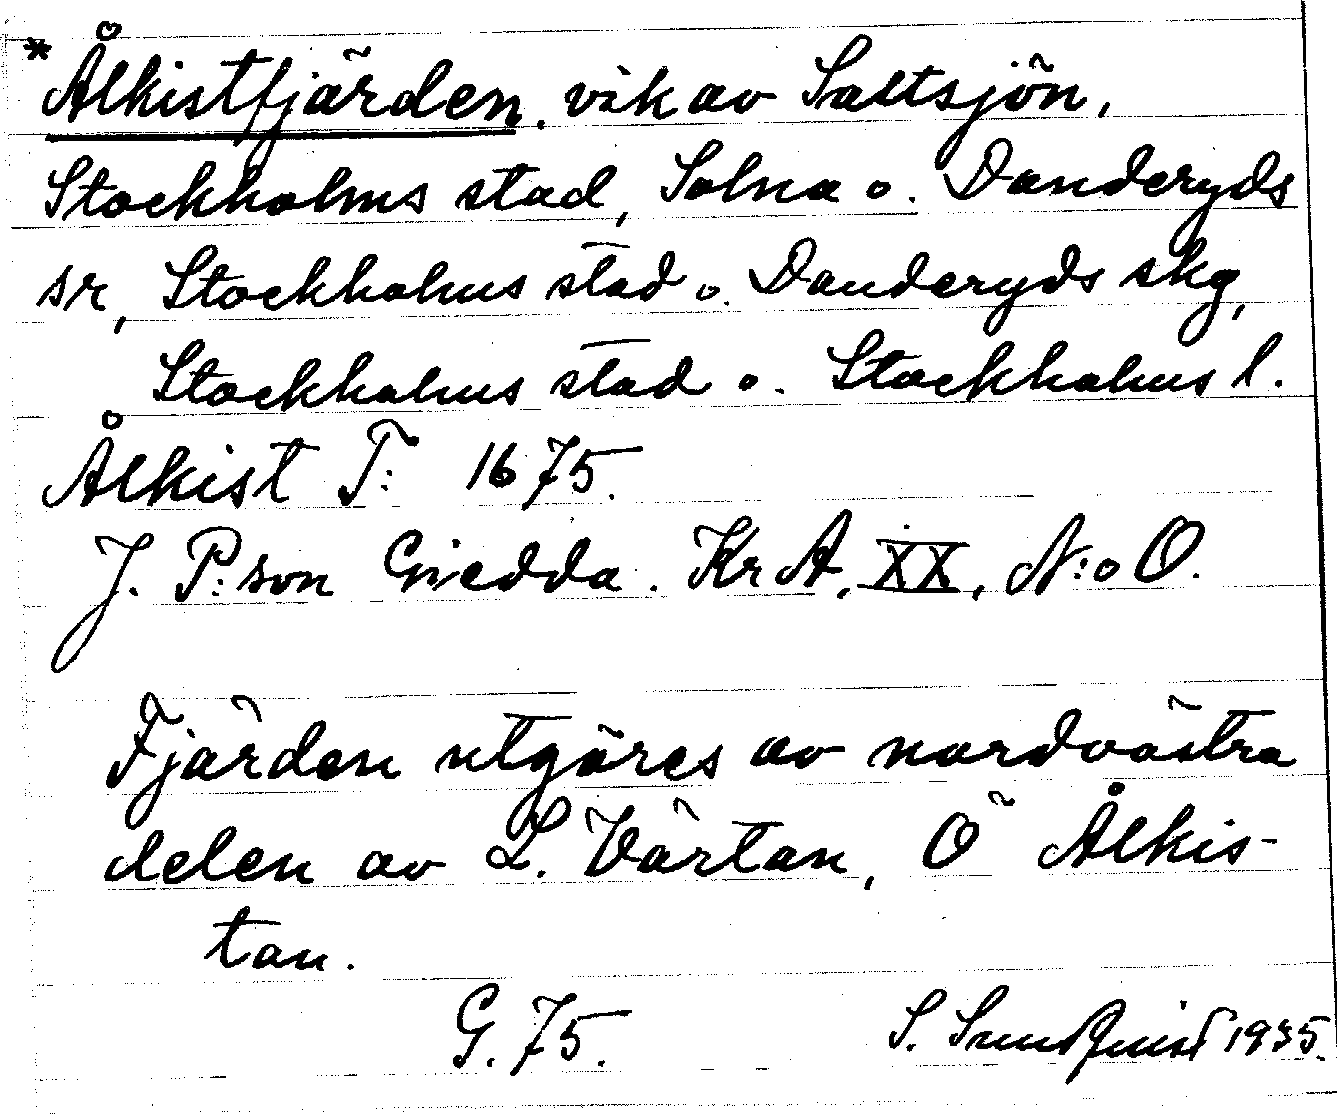 *Ålkistfjärden. vik av Saltsjön,
Stockholms stad, Solna o. Danderyds
sr, Stockholms stad o. Danderyds skg,
Stockholms stad o. Stockholms l.
Ålkist T: 1675.
J. P:son Giedda. KrA, XX, N:o O.
Fjärden utgöres av nordvästra
delen av L. Värtan, Ö Ålkis-
tan.
G. 75. S. Sundquist 1935.